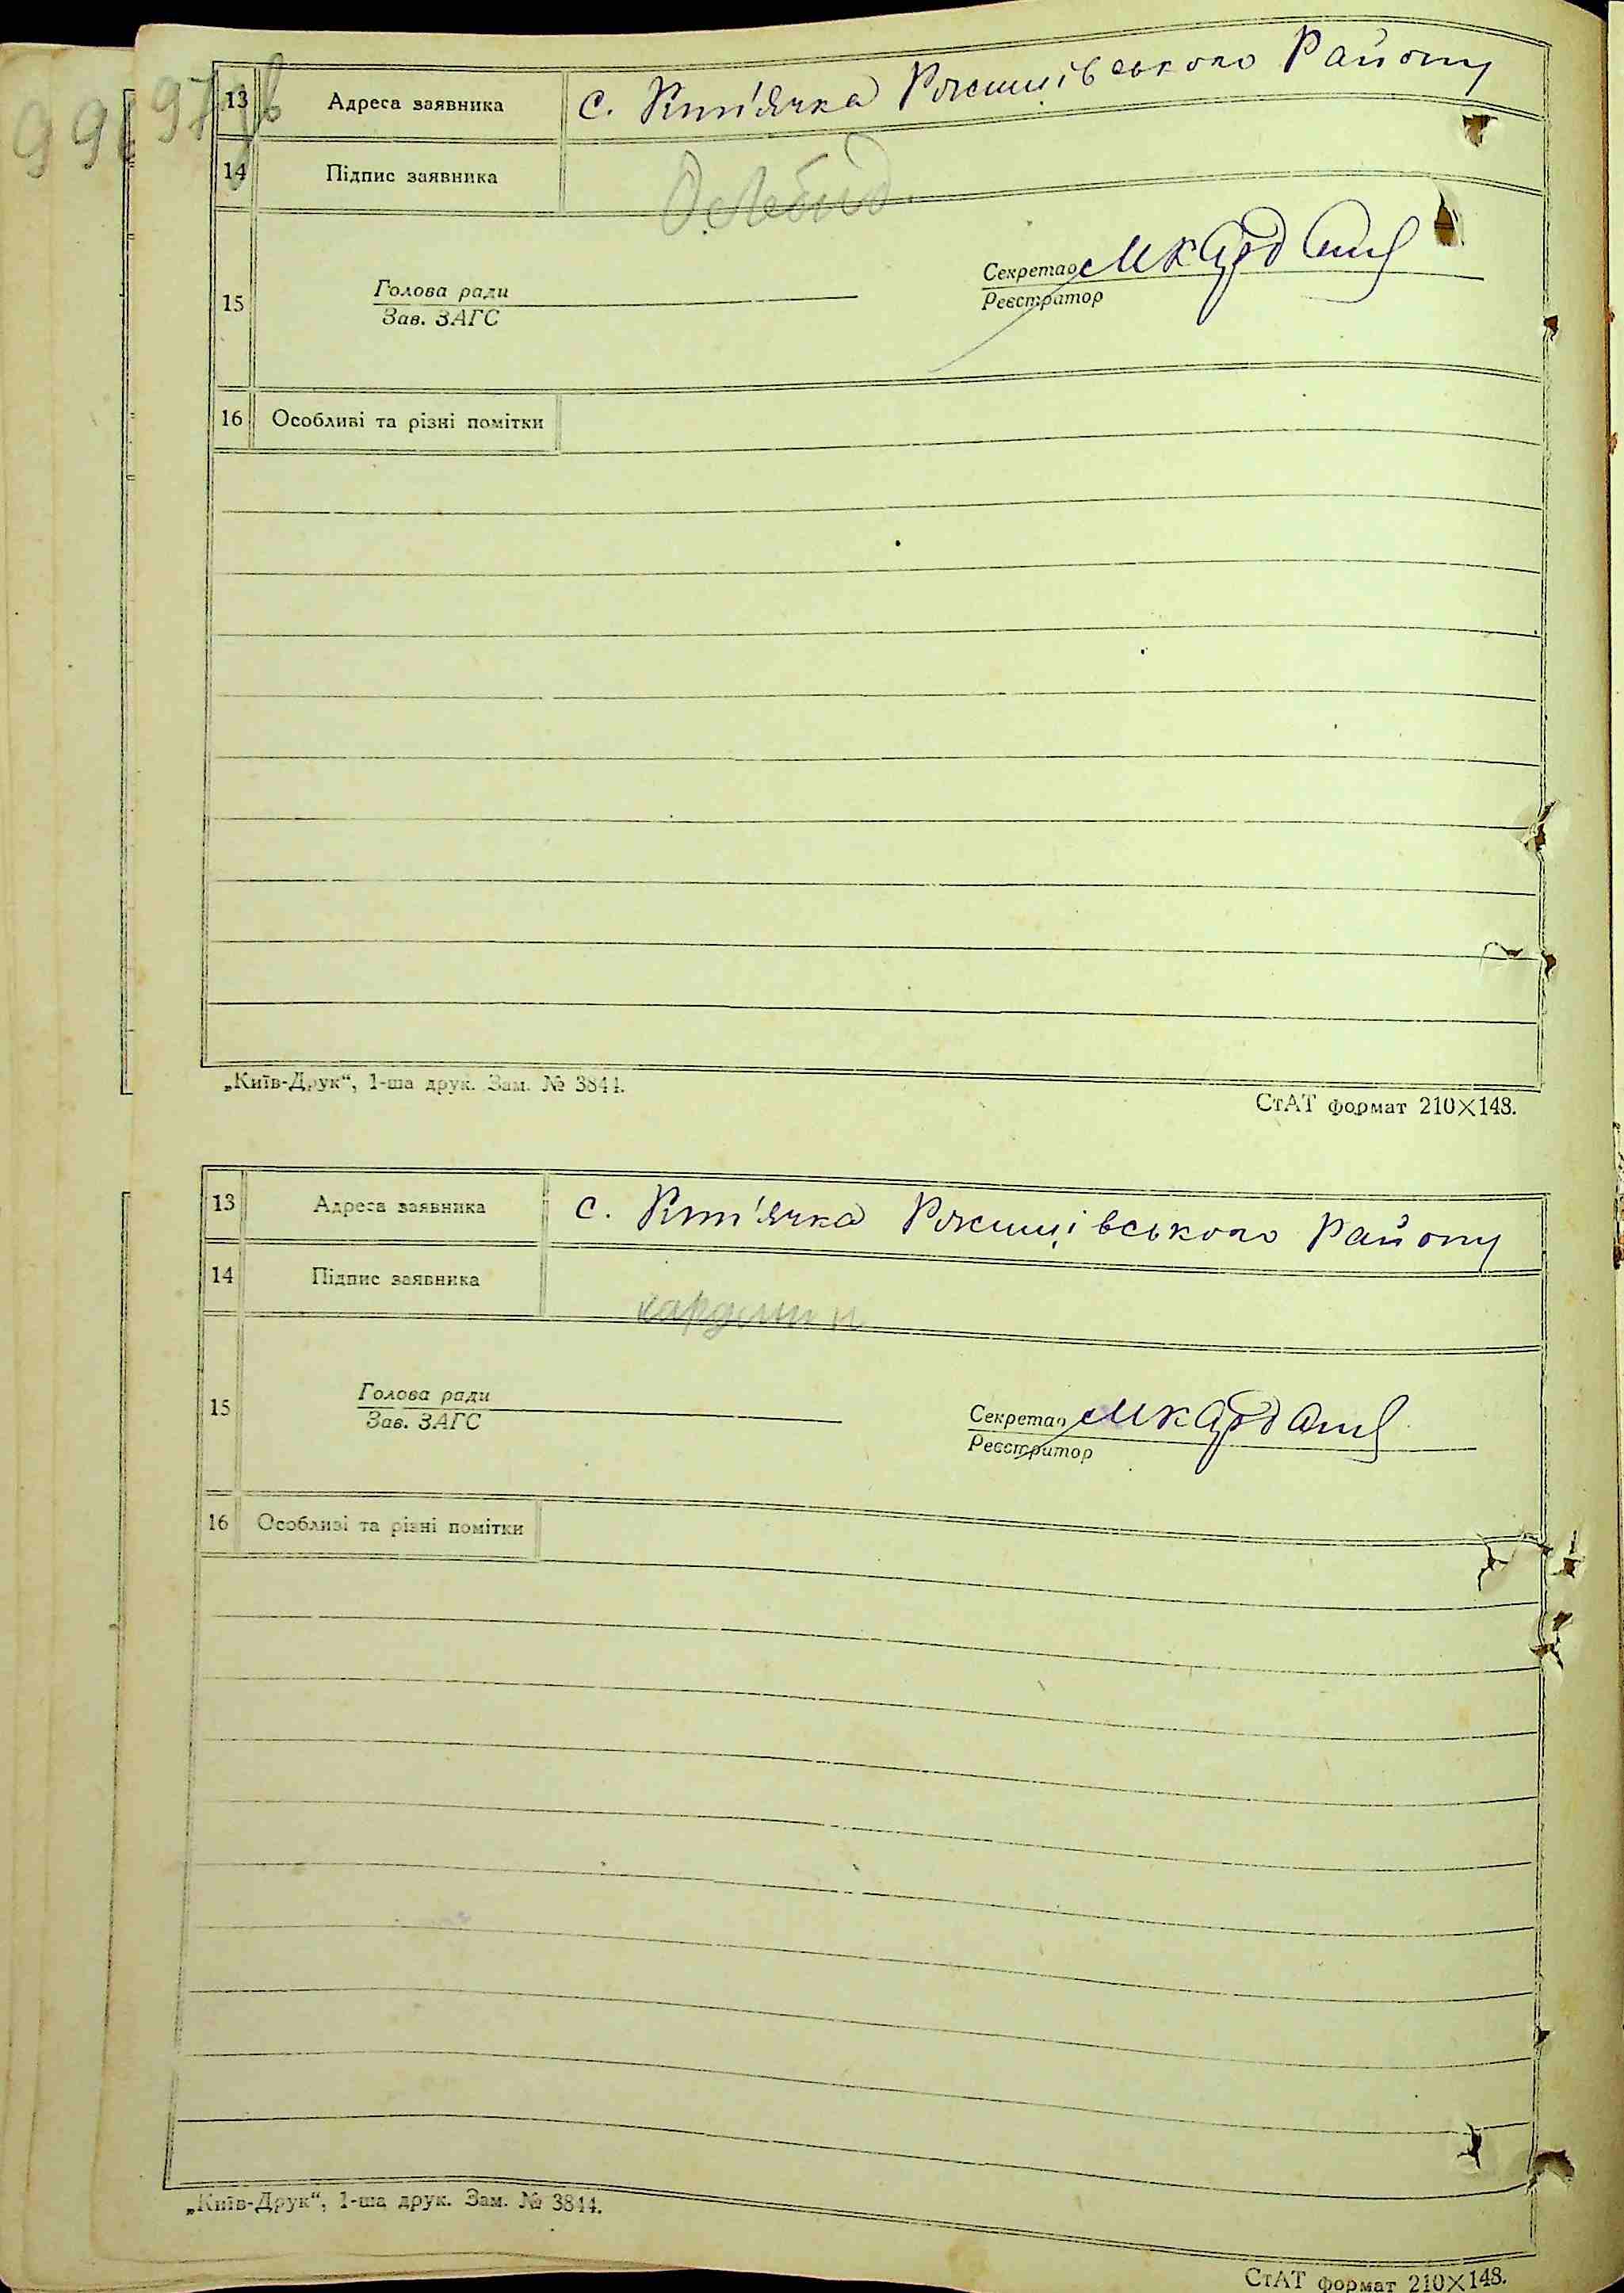 99
97 зв
13 Адреса заявника с. Кип'ячка Ржищівського Району
14 Підпис заявника О. Лебид.
15 Голова ради
Зав. ЗАГС
Секретар
Реєстратор
16 Особливі та різні помітки
„Київ-Друк“, 1-ша друк. Зам. № 3844.
СтАТ формат 210×148.
13 Адреса заявника с. Кип'ячка Ржищівського Району
14 Підпис заявника
15 Голова ради
Зав. ЗАГС
Секретар
Реєстратор
16 Особливі та різні помітки
„Київ-Друк“, 1-ша друк. Зам. № 3844.
СтАТ формат 210×148.